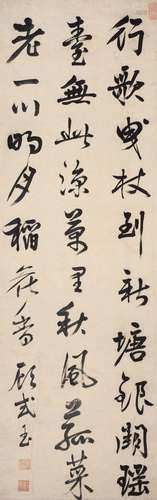 行歌曳杖到新塘銀闕瑶
臺無此涼萬里秋風菰菜
老一川明月稻花香 顧武